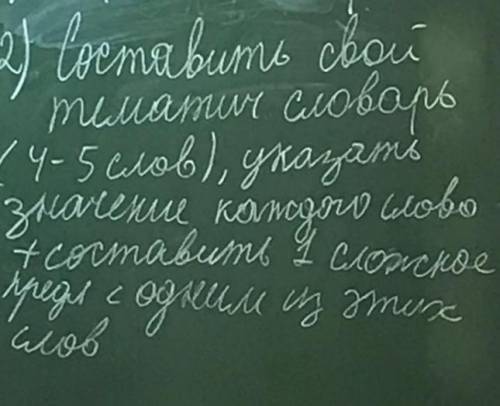 2) Составить свой
тематич словарь
(4-5 слов), указать
значение каждого слова
+ составить 1 сложное
предл с одним из этих
слов